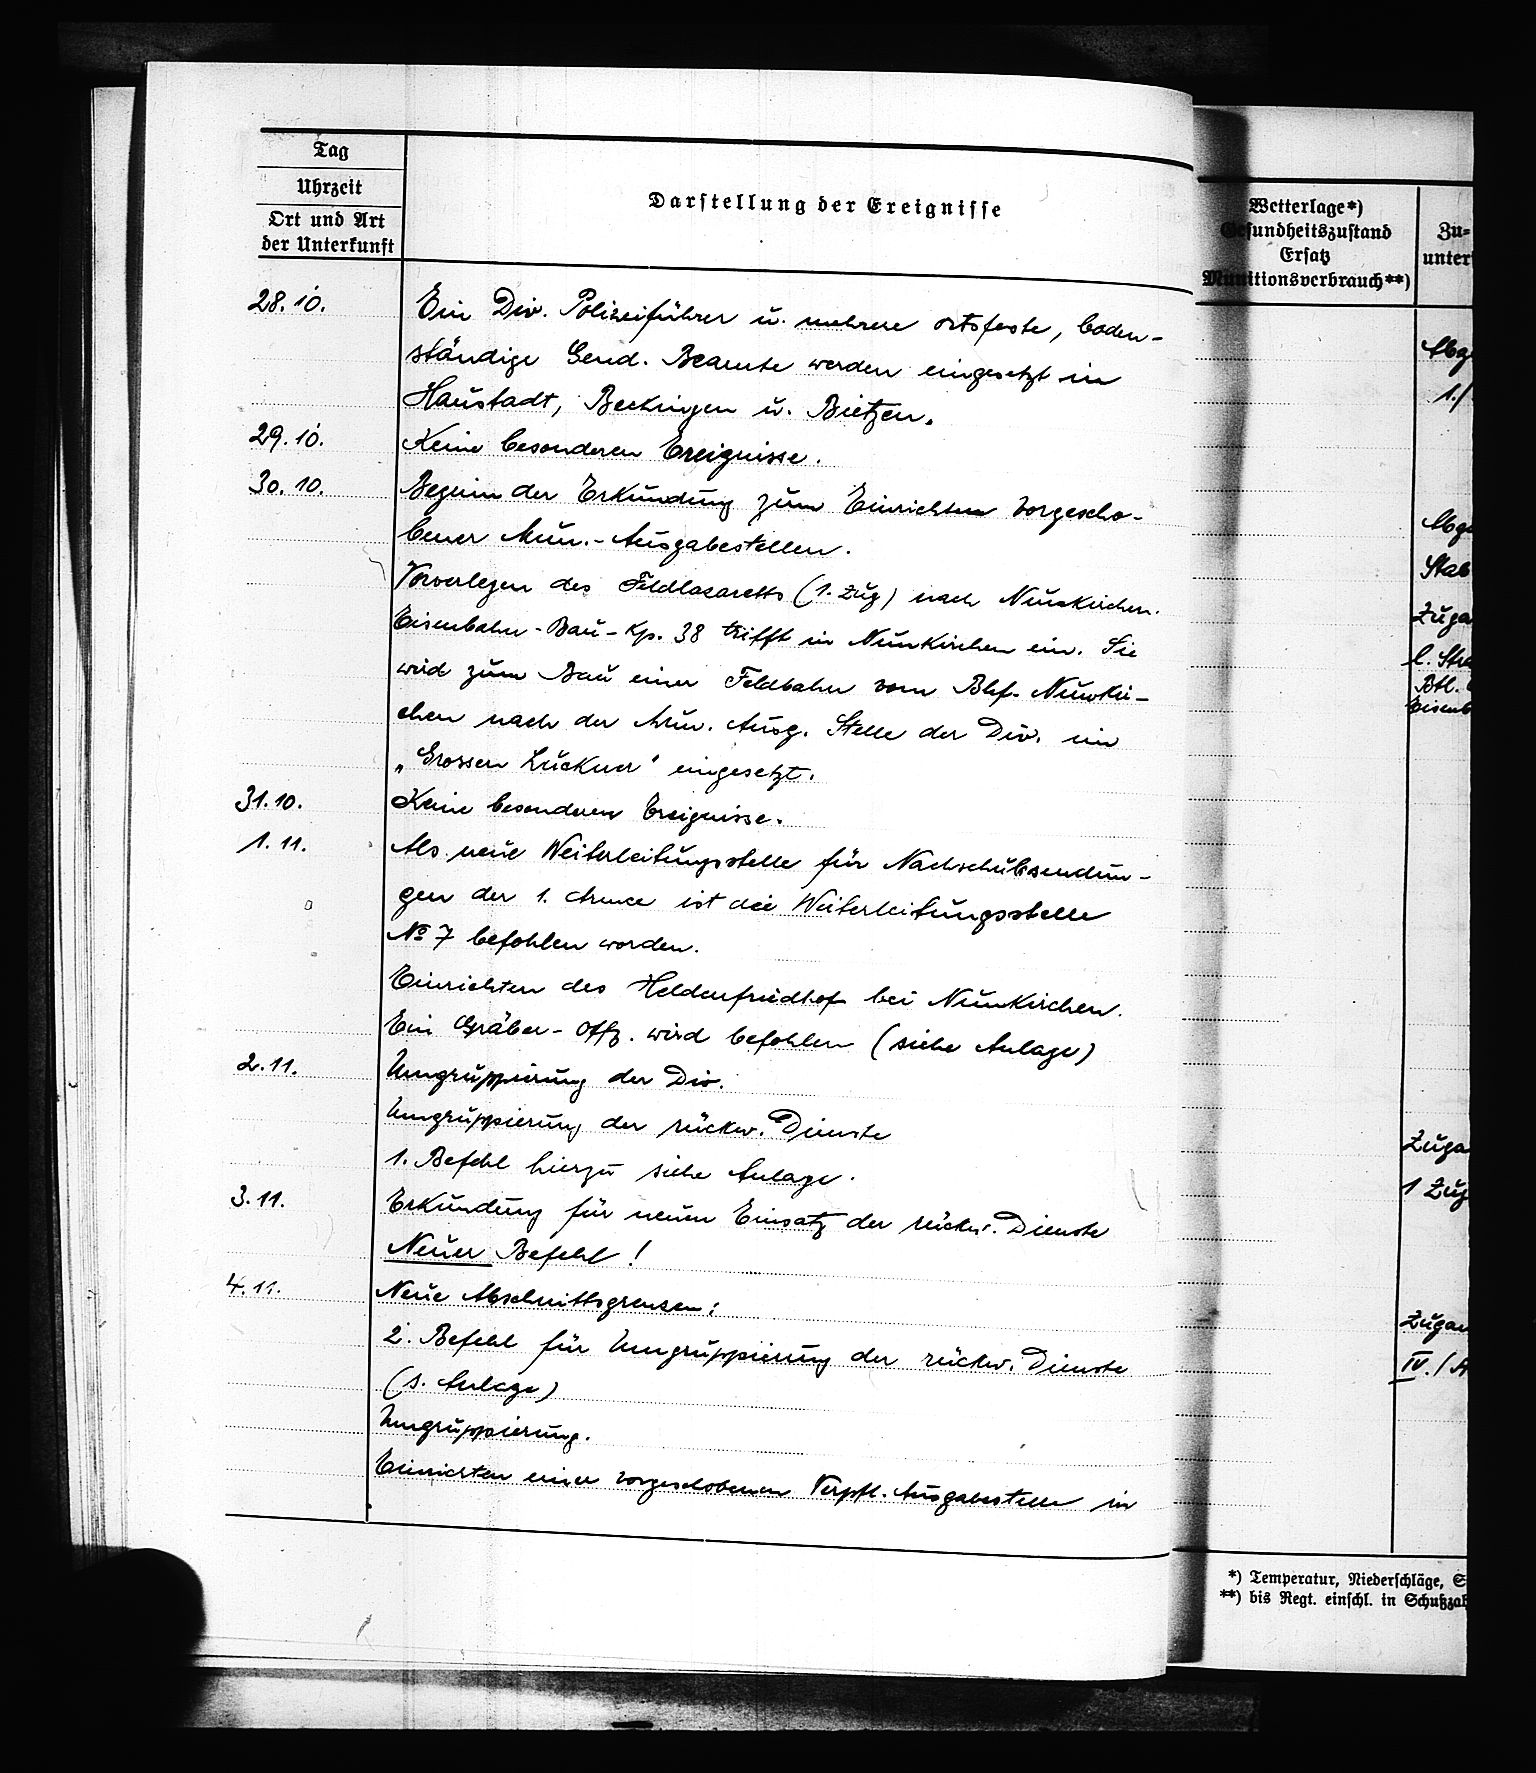 Tag
Uhrzeit
Ort und Art
der Unterkunft
Darstellung der Ereignisse
28.10. Ein Div. Polizeiführer u. mehrere ortsfeste, boden-
ständige Gend. Beamte werden eingesetzt in
Haustadt, Beckingen u. Bietzen.
29.10. Keine besonderen Ereignisse.
30.10. Beginn der Erkundung zum Einrichten vorgescho-
bener Mun.-Ausgabestellen.
Vorverlegen des Feldlazaretts (1. Zug) nach Nunkirchen.
Eisenbahn-Bau-Kp. 38 trifft in Nunkirchen ein. Sie
wird zum Bau einer Feldbahn vom Bhf. Nunkir-
chen nach der Mun. Ausg. Stelle der Div. im
„Grossen Lückner" eingesetzt.
31.10. Keine besonderen Ereignisse.
1.11. Als neue Weiterleitungsstelle für Nachschubsendun-
gen der 1. Armee ist die Weiterleitungsstelle
No 7 befohlen worden.
Einrichten des Heldenfriedhof bei Nunkirchen.
Ein Gräber-Offz. wird befohlen (siehe Anlage)
2.11. Umgruppierung der Div.
Umgruppierung der rückw. Dienste
1. Befehl hierzu siehe Anlage.
3.11. Erkundung für neuen Einsatz der rückw. Dienste
Neuer Befehl!
4.11. Neue Abschnittsgrenzen:
2. Befehl für Umgruppierung der rückw. Dienste
(s. Anlage)
Umgruppierung.
Einrichten einer vorgeschobenen Verpfl. Ausgabestelle in
Wetterlage*)
Gesundheitszustand
Ersatz
Munitionsverbrauch**)
Zu-
unter
Abg
1./
Abg
Stab
Zuga
l. Str
Btl.
Eisenb
Zuga
1 Zug
Zugan
IV./A
*) Temperatur, Niederschläge, S
**) bis Regt. einschl. in Schußzah